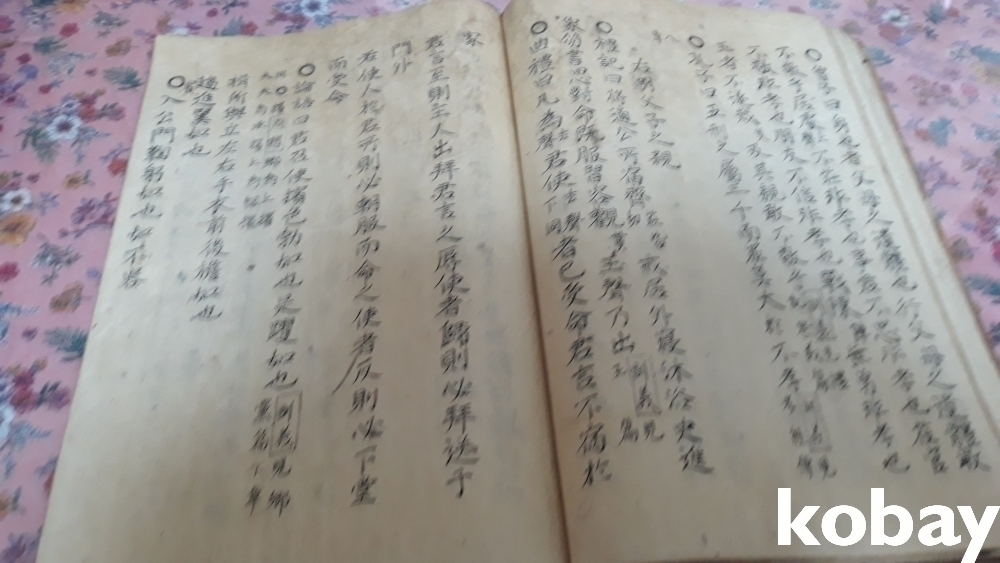 ○曾子曰身也者父母之遺體也行父母之遺體敢
不敬乎居處不莊非孝也事君不忠非孝也莅官
不敬非孝也朋友不信非孝也戰陳無勇非孝也
五者不遂災及其親敢不敬乎
○孔子曰五刑之屬三千而罪莫大於不孝
右明父子之親
○禮記曰將適公所宿齊戒居外寢沐浴史進
象笏書思對命旣服習容觀玉聲乃出 集義見玉 篇
○曲禮曰凡為君使者已受命君言不宿於
家
君言至則主人出拜君言之辱使者歸則必拜送于
門外
若使人於君所則必朝服而命之使者反則必下堂
而受命
○論語曰君召使擯色勃如也足躩如也 集義見鄕黨篇下章
揖所與立左右手衣前後襜如也
趨進翼如也
○入公門鞠躬如也如不容
kobay